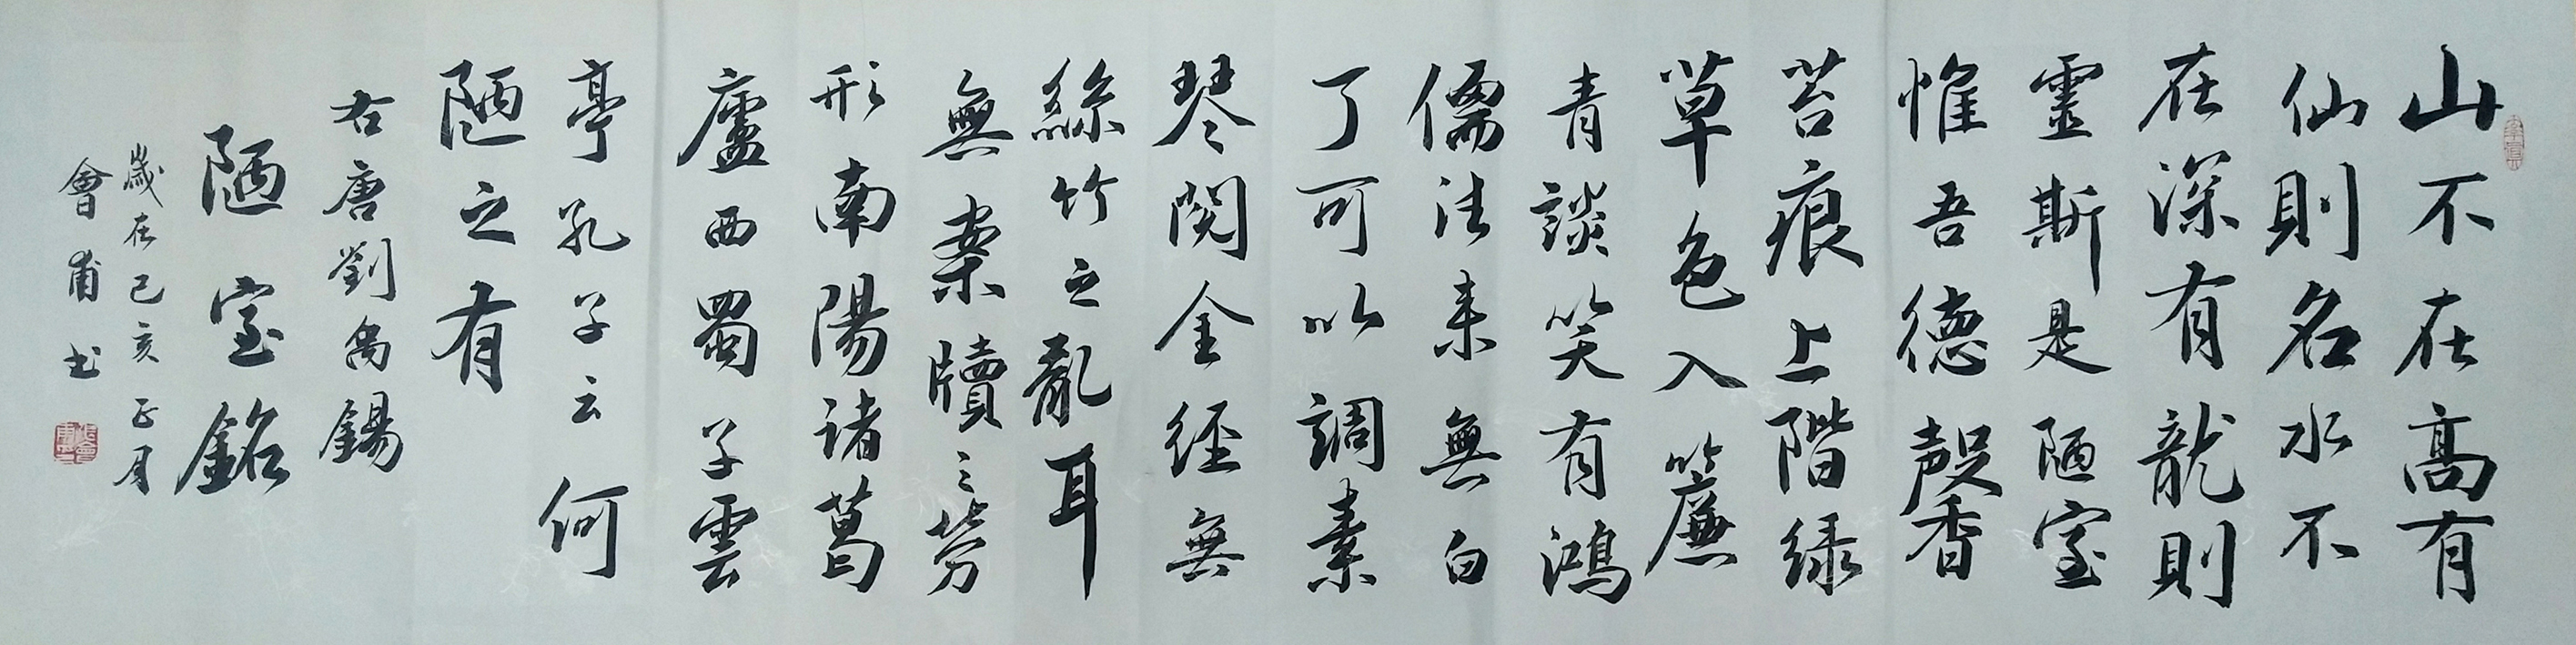 山不在高有
仙則名水不
在深有龍則
靈斯是陋室
惟吾德馨
苔痕上階緑
草色入簾
青談笑有鴻
儒往来無白
丁可以調素
琴閱金經無
絲竹之亂耳
無案牘之勞
形南陽諸葛
廬西蜀子雲
亭孔子云何
陋之有
右唐劉禹錫
陋室銘
歲在己亥正月
會甫书